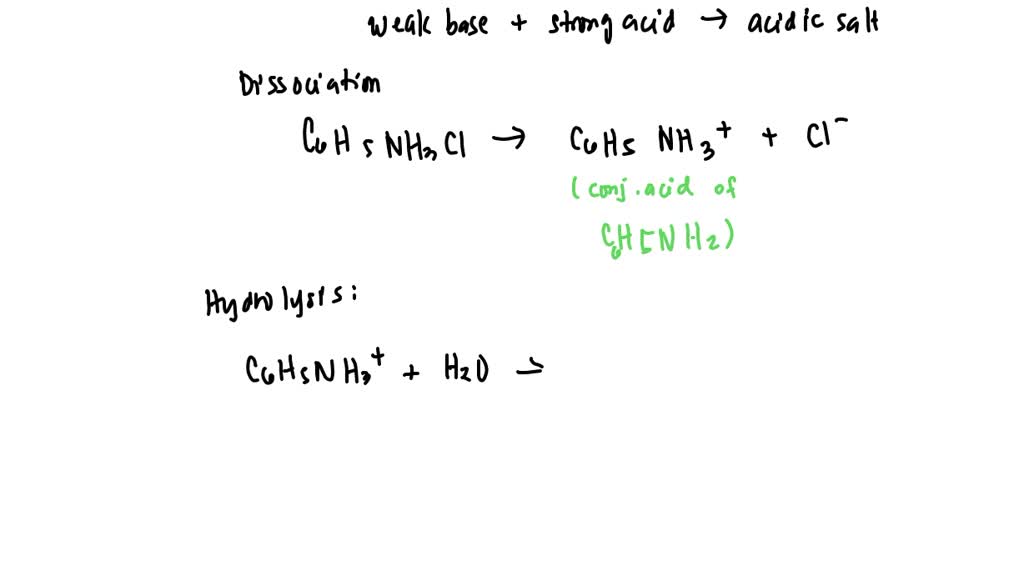 weak base + strong acid → acidic salt
Dissociation
C6H5NH3Cl → C6H5NH3+ + Cl-
(conj. acid of
C6H5NH2)
Hydrolysis:
C6H5NH3+ + H2O ⇌